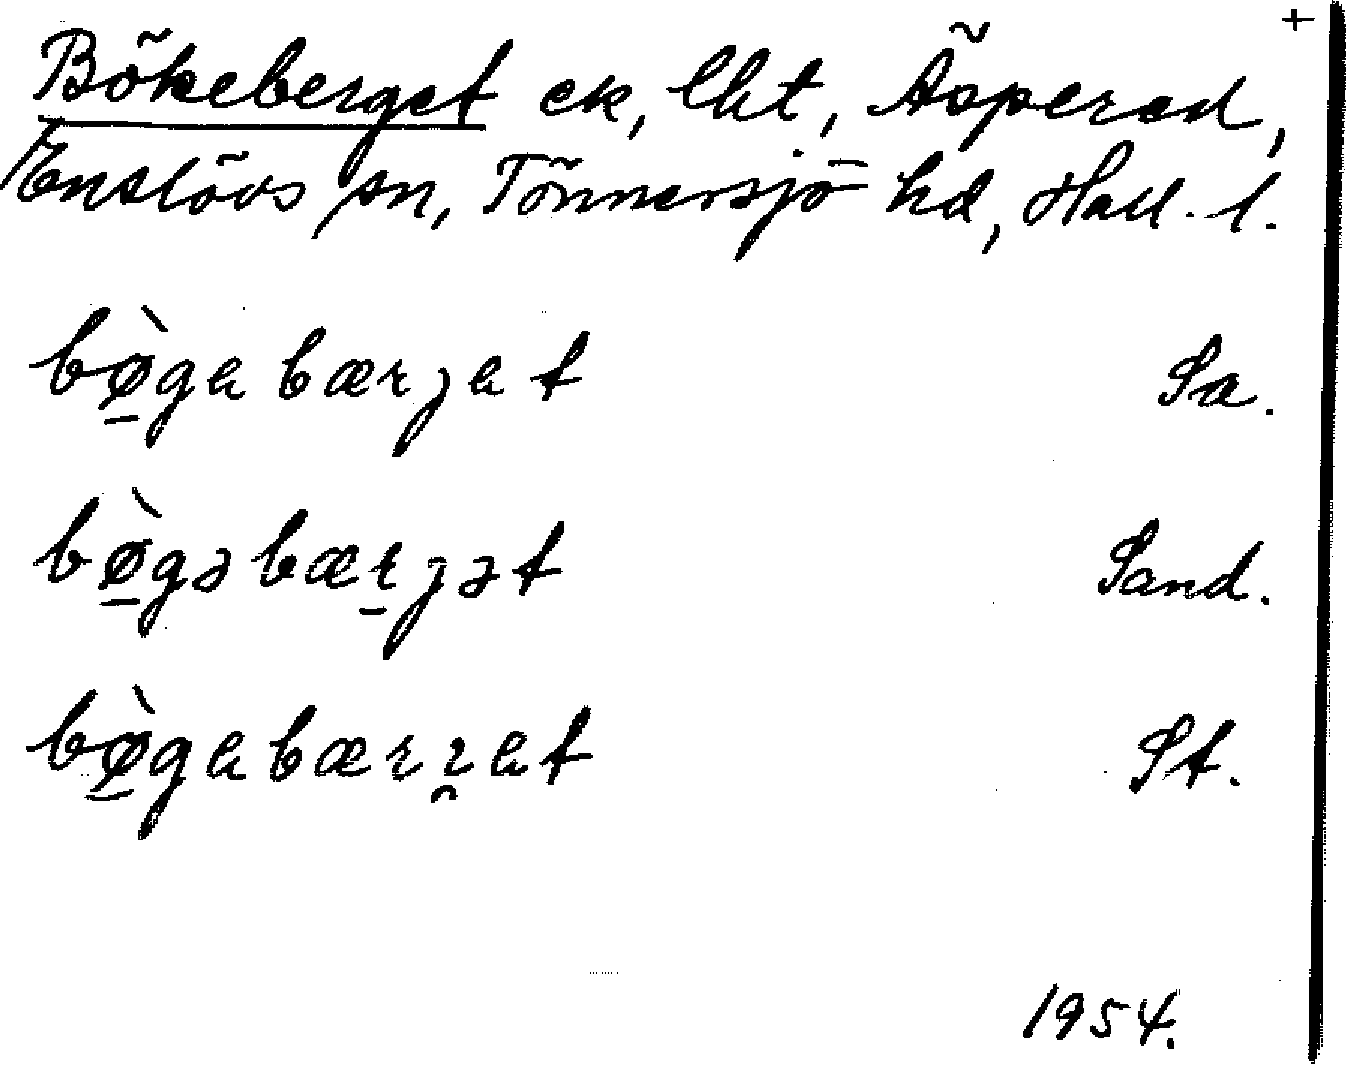 +
Bökeberget ek, lht, Äspered,
Enslövs sn, Tönnersjö hd, Hall. l.
bø̱̀gebærȷet Sa.
bø̱̀gəbæṟȷət Sand.
bø̱̀gebærɪ̯et St.
1954.